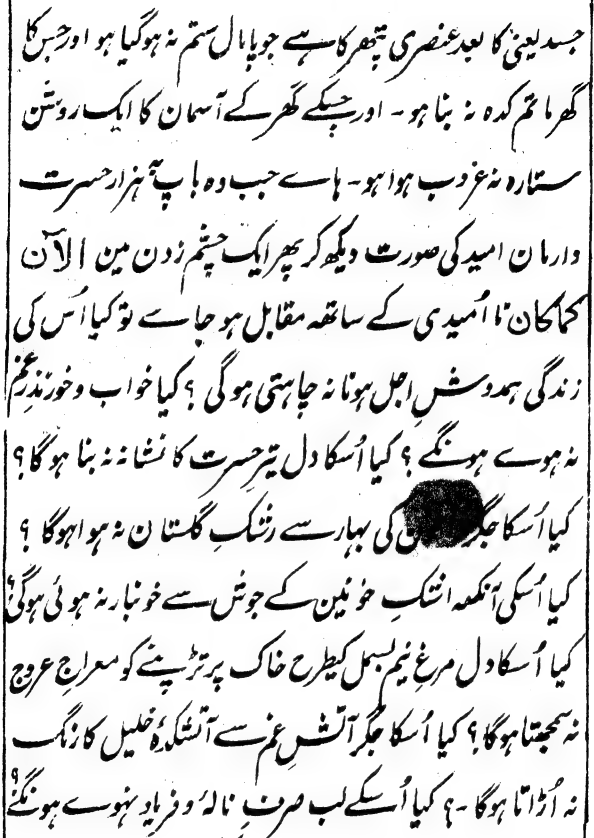 جسد یعنی کا بعد عنصری پتھر کا ہے جو پامال ستم نہ ہو گیا ہو اور جس کا
گھر ماتم کدہ نہ بنا ہو ۔ اور جسکے گھر کے آسمان کا ایک روشن
ستارہ نہ غروب ہوا ہو ۔ ہاے جب وہ باپ بہ ہزار حسرت
وارمان امید کی صورت دیکھ کر پھر ایک چشم زدن مین الآن
کماکان نا اُمیدی کے ساتھہ مقابل ہو جاے تو کیا اُس کی
زندگی ہمدوشِ اجل ہونا نہ چاہتی ہو گی ؟ کیا خواب و خور نذرِ غم
نہ ہوے ہونگے ؟ کیا اُسکا دل تیرِ حسرت کا نشانہ نہ بنا ہو گا ؟
کیا اُسکا جگر کی بہار سے رشکِ گلستان نہ ہوا ہوگا ؟
کیا اُسکی آنکھہ اشکِ خونین کے جوش سے خونبار نہ ہوئی ہوگی ؟
کیا اُسکا دل مرغِ نیم بسمل کیطرح خاک پر تڑپنے کو معراجِ عروج
نہ سمجھتا ہوگا ؟ کیا اُسکا جگر آتشِ غم سے آتشکدۂ خلیل کا رنگ
نہ اُڑاتا ہوگا ۔ ؟ کیا اُسکے لب صرفِ نالہ و فریاد نہوے ہونگے ؟